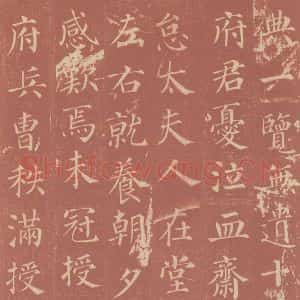 典一覽無遺十
府君憂泣血齋
怠太夫人在堂
左右就養朝夕
感歎焉未冠授
府兵曹秩滿授